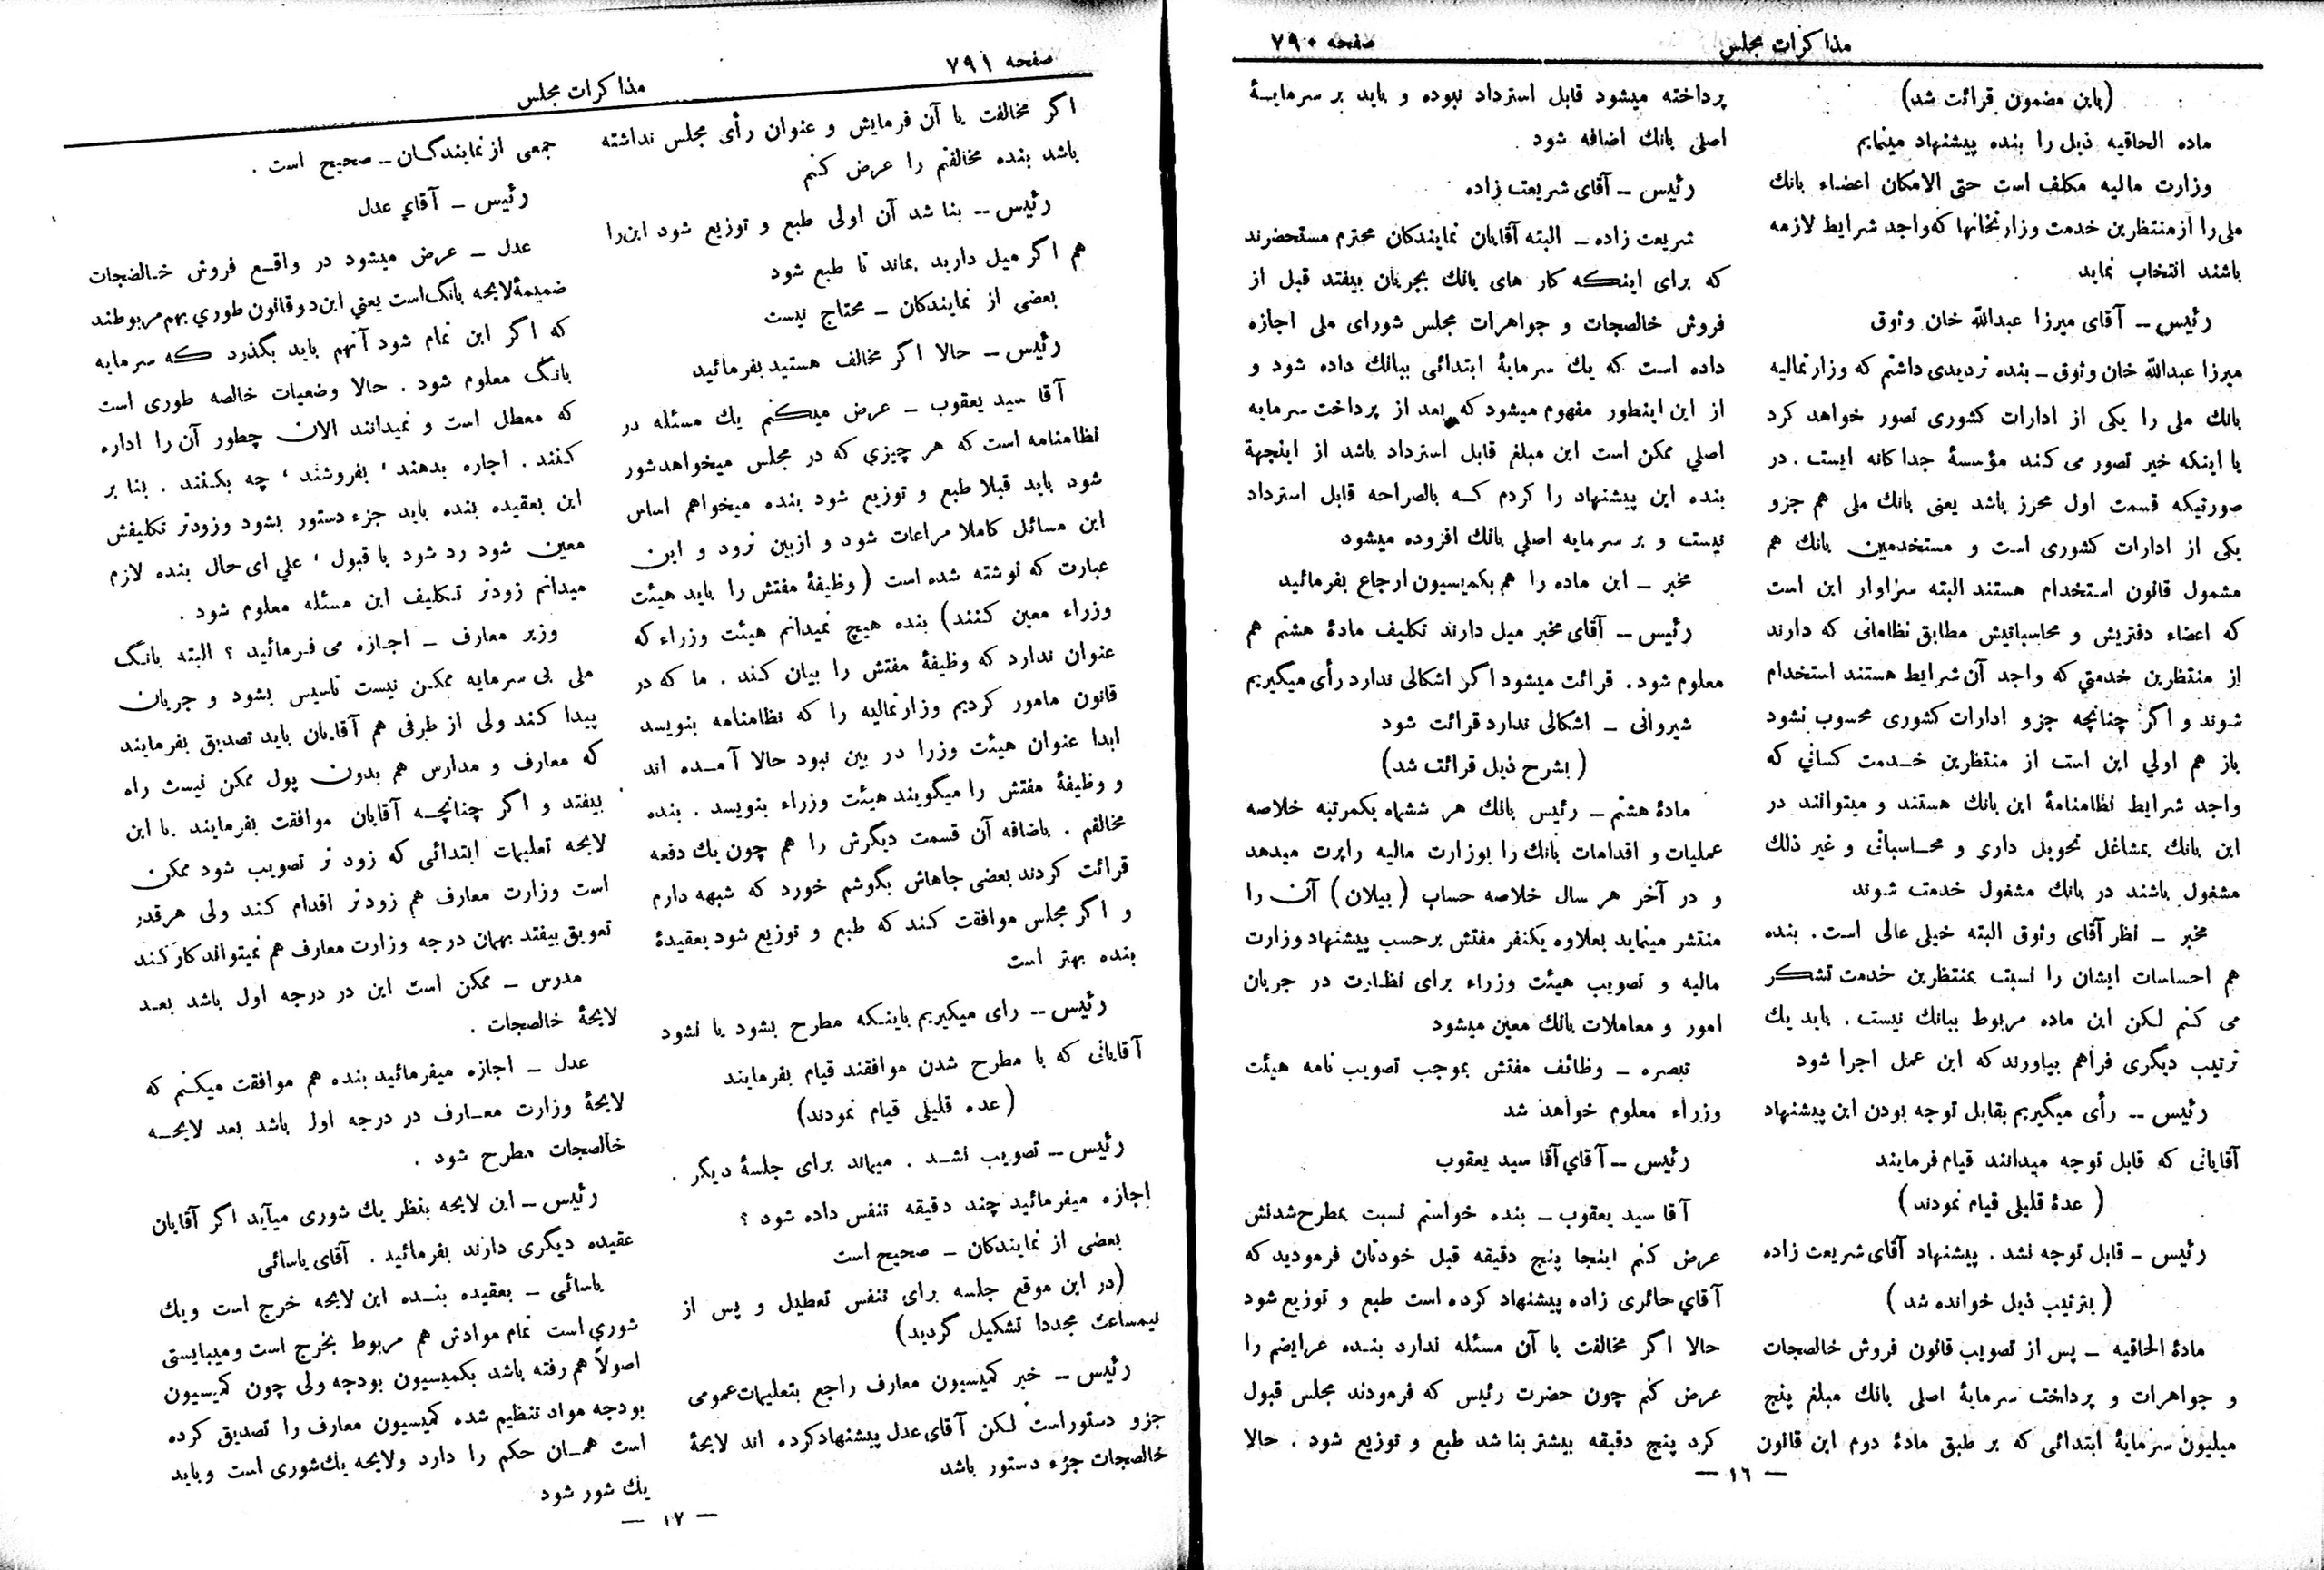 مذاکرات مجلس
صفحه ۷۹۰
(باین مضمون قرائت شد)
ماده الحاقیه ذیل را بنده پیشنهاد مینمایم
وزارت مالیه مکلف است حتی الامکان اعضاء بانك
ملی را از منتظرین خدمت وزارتخانها که واجد شرایط لازمه
باشند انتخاب نماید
رئیس ــ آقای میرزا عبدالله خان وثوق
میرزا عبدالله خان وثوق ــ بنده تردیدی داشتم که وزارتمالیه
بانك ملی را یکی از ادارات کشوری تصور خواهد کرد
یا اینکه خیر تصور می کند مؤسسهٔ جداگانه ایست . در
صورتیکه قسمت اول محرز باشد یعنی بانك ملی هم جزو
یکی از ادارات کشوری است و مستخدمین بانك هم
مشمول قانون استخدام هستند البته سزاوار این است
که اعضاء دفتریش و محاسباتیش مطابق نظاماتی که دارند
از منتظرین خدمتي که واجد آن شرایط هستند استخدام
شوند و اگر چنانچه جزو ادارات کشوری محسوب نشود
باز هم اولي این است از منتظرین خــدمت کسانی که
واجد شرایط نظامنامهٔ این بانك هستند و میتوانند در
این بانك بمشاغل تحویل داری و محــاسباتی و غیر ذلك
مشغول باشند در بانك مشغول خدمت شوند
مخبر ــ نظر آقای وثوق البته خیلی عالی است . بنده
هم احساسات ایشان را نسبت بمنتظرین خدمت تشکر
می کنم لکن این ماده مربوط ببانك نیست . باید یك
ترتیب دیگری فراهم بیاورند که این عمل اجرا شود
رئیس ــ رأی میگیریم بقابل توجه بودن این پیشنهاد
آقایانی که قابل توجه میدانند قیام فرمایند
(عدهٔ قلیلی قیام نمودند)
رئیس ــ قابل توجه نشد . پیشنهاد آقای شریعت زاده
(بترتیب ذیل خوانده شد)
مادهٔ الحاقیه ــ پس از تصویب قانون فروش خالصجات
و جواهرات و پرداخت سرمایهٔ اصلی بانك مبلغ پنج
میلیون سرمایهٔ ابتدائی که بر طبق مادهٔ دوم این قانون
پرداخته میشود قابل استرداد نبوده و باید بر سرمایــهٔ
اصلی بانك اضافه شود .
رئیس ــ آقای شریعت زاده
شریعت زاده ــ البته آقایان نمایندکان محترم مستحضرند
که برای اینکه کار های بانك بجریان بیفتد قبل از
فروش خالصجات و جواهرات مجلس شورای ملی اجازه
داده است که یك سرمایهٔ ابتدائی ببانك داده شود و
از این اینطور مفهوم میشود که بعد از پرداخت سرمایه
اصلي ممکن است این مبلغ قابل استرداد باشد از اینجهة
بنده این پیشنهاد را کردم کــه بالصراحه قابل استرداد
نیست و بر سرمایه اصلي بانك افزوده میشود
مخبر ــ این ماده را هم بکمیسیون ارجاع بفرمائید
رئیس ــ آقای مخبر میل دارند تکلیف مادهٔ هشتم هم
معلوم شود . قرائت میشود اگر اشکالی ندارد رأی میگیریم
شیروانی ــ اشکالی ندارد قرائت شود
(بشرح ذیل قرائت شد)
مادهٔ هشتم ــ رئیس بانك هر ششماه یکمرتبه خلاصه
عملیات و اقدامات بانك را بوزارت مالیه راپرت میدهد
و در آخر هر سال خلاصه حساب (بیلان) آن را
منتشر مینماید بعلاوه یکنفر مفتش برحسب پیشنهاد وزارت
مالیه و تصویب هیئت وزراء برای نظارت در جریان
امور و معاملات بانك معین میشود
تبصره ــ وظائف مفتش بموجب تصویب نامه هیئت
وزراء معلوم خواهد شد
رئیس ــ آقاي آقا سید یعقوب
آقا سید یعقوب ــ بنده خواستم نسبت بمطرح شدنش
عرض کنم اینجا پنج دقیقه قبل خودتان فرمودید که
آقاي حائری زاده پیشنهاد کرده است طبع و توزیع شود
حالا اگر مخالفت با آن مسئله ندارد بنــده عرایضم را
عرض کنم چون حضرت رئیس که فرمودند مجلس قبول
کرد پنج دقیقه بیشتر بنا شد طبع و توزیع شود . حالا
— ۱۶ —
صفحه ۷۹۱
مذاکرات مجلس
اگر مخالفت با آن فرمایش و عنوان رأی مجلس نداشته
باشد بنده مخالفتم را عرض کنم
رئیس ــ بنا شد آن اولی طبع و توزیع شود این‌را
هم اگر میل دارید بماند تا طبع شود
بعضی از نمایندکان ــ محتاج نیست
رئیس ــ حالا اگر مخالف هستید بفرمائید
آقا سید یعقوب ــ عرض میکنم یك مسئله در
نظامنامه است که هر چیزي که در مجلس میخواهد شور
شود باید قبلا طبع و توزیع شود بنده میخواهم اساس
این مسائل کاملا مراعات شود و ازبین نرود و این
عبارت که نوشته شده است (وظیفهٔ مفتش را باید هیئت
وزراء معین کنند) بنده هیچ نمیدانم هیئت وزراء که
عنوان ندارد که وظیفهٔ مفتش را بیان کند . ما که در
قانون مامور کردیم وزارتمالیه را که نظامنامه بنویسد
ابدا عنوان هیئت وزرا در بین نبود حالا آمــده اند
و وظیفهٔ مفتش را میگویند هیئت وزراء بنویسد . بنده
مخالفم . باضافه آن قسمت دیگرش را هم چون یك دفعه
قرائت کردند بعضی جاهاش بگوشم خورد که شبهه دارم
و اگر مجلس موافقت کند که طبع و توزیع شود بعقیدهٔ
بنده بهتر است
رئیس ــ رای میکیریم باینکه مطرح بشود یا نشود
آقایانی که با مطرح شدن موافقند قیام بفرمایند
(عده قلیلی قیام نمودند)
رئیس ــ تصویب نشــد . میماند برای جلسهٔ دیگر .
اجازه میفرمائید چند دقیقه تنفس داده شود ؟
بعضی از نمایندکان ــ صحیح است
(در این موقع جلسه برای تنفس تعطیل و پس از
نیمساعت مجددا تشکیل گردید)
رئیس ــ خبر کمیسیون معارف راجع بتعلیمات عمومی
جزو دستور است لکن آقای عدل پیشنهاد کرده اند لایحهٔ
خالصجات جزء دستور باشد
جمعی از نمایندگــان ــ صحیح است .
رئیس ــ آقاي عدل
عدل ــ عرض میشود در واقــع فروش خــالصجات
ضمیمهٔ لایحه بانگ است یعني این دو قانون طوري بهم مربوطند
که اگر این تمام شود آنهم باید بگذرد که سرمایه
بانگ معلوم شود . حالا وضعیات خالصه طوری است
که معطل است و نمیدانند الان چطور آن را اداره
کنند . اجاره بدهند ، بفروشند ، چه بکنند . بنا بر
این بعقیده بنده باید جزء دستور بشود وزودتر تکلیفش
معین شود رد شود یا قبول ، علي ای حال بنده لازم
میدانم زودتر تکلیف این مسئله معلوم شود .
وزیر معارف ــ اجازه می فرمائید ؟ البته بانگ
ملی بی سرمایه ممکن نیست تاسیس بشود و جریان
پیدا کند ولی از طرفی هم آقایان باید تصدیق بفرمایند
که معارف و مدارس هم بدون پول ممکن نیست راه
بیفتد و اگر چنانچــه آقایان موافقت بفرمایند با این
لایحه تعلیمات ابتدائی که زود تر تصویب شود ممکن
است وزارت معارف هم زودتر اقدام کند ولی هرقدر
تعویق بیفتد بهمان درجه وزارت معارف هم نمیتواند کار کند
مدرس ــ ممکن است این در درجه اول باشد بعــد
لایحهٔ خالصجات .
عدل ــ اجازه میفرمائید بنده هم موافقت میکنم که
لایحهٔ وزارت معــارف در درجه اول باشد بعد لایحــه
خالصجات مطرح شود .
رئیس ــ این لایحه بنظر یك شوری میآید اگر آقایان
عقیده دیگری دارند بفرمائید . آقای یاسائی
یاسائی ــ بعقیده بنــده این لایحه خرج است ویك
شوري است تمام موادش هم مربوط بخرج است ومیبایستی
اصولاً هم رفته باشد بکمیسیون بودجه ولی چون کمیسیون
بودجه مواد تنظیم شده کمیسیون معارف را تصدیق کرده
است همــان حکم را دارد ولایحه یك شوری است وباید
یك شور شود
— ۱۷ —